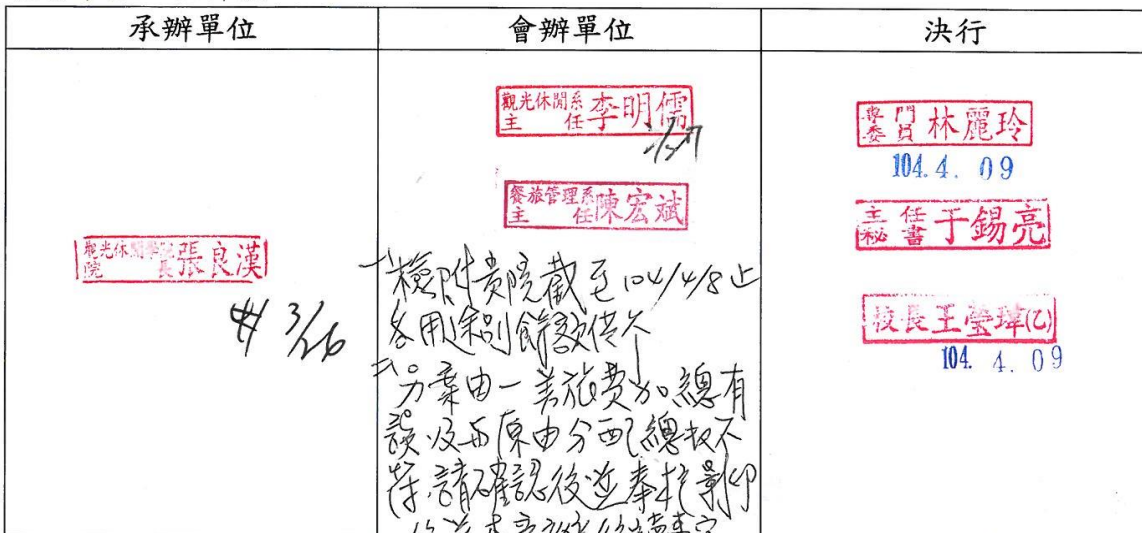 承辦單位
會辦單位
決行
觀光休閒學院
院長張良漢
3/26
觀光休閒系
主任李明儒
餐旅管理系
主任陳宏斌
一、檢附貴院截至104/4/8止
各用途別餘額供參
二、另案由一差旅費加總有
誤及與原由分配總額不
符,請確認後逕奉核影印
專門
委員林麗玲
104.4.09
主任
秘書于錫亮
校長王瑩瑋(乙)
104.4.09